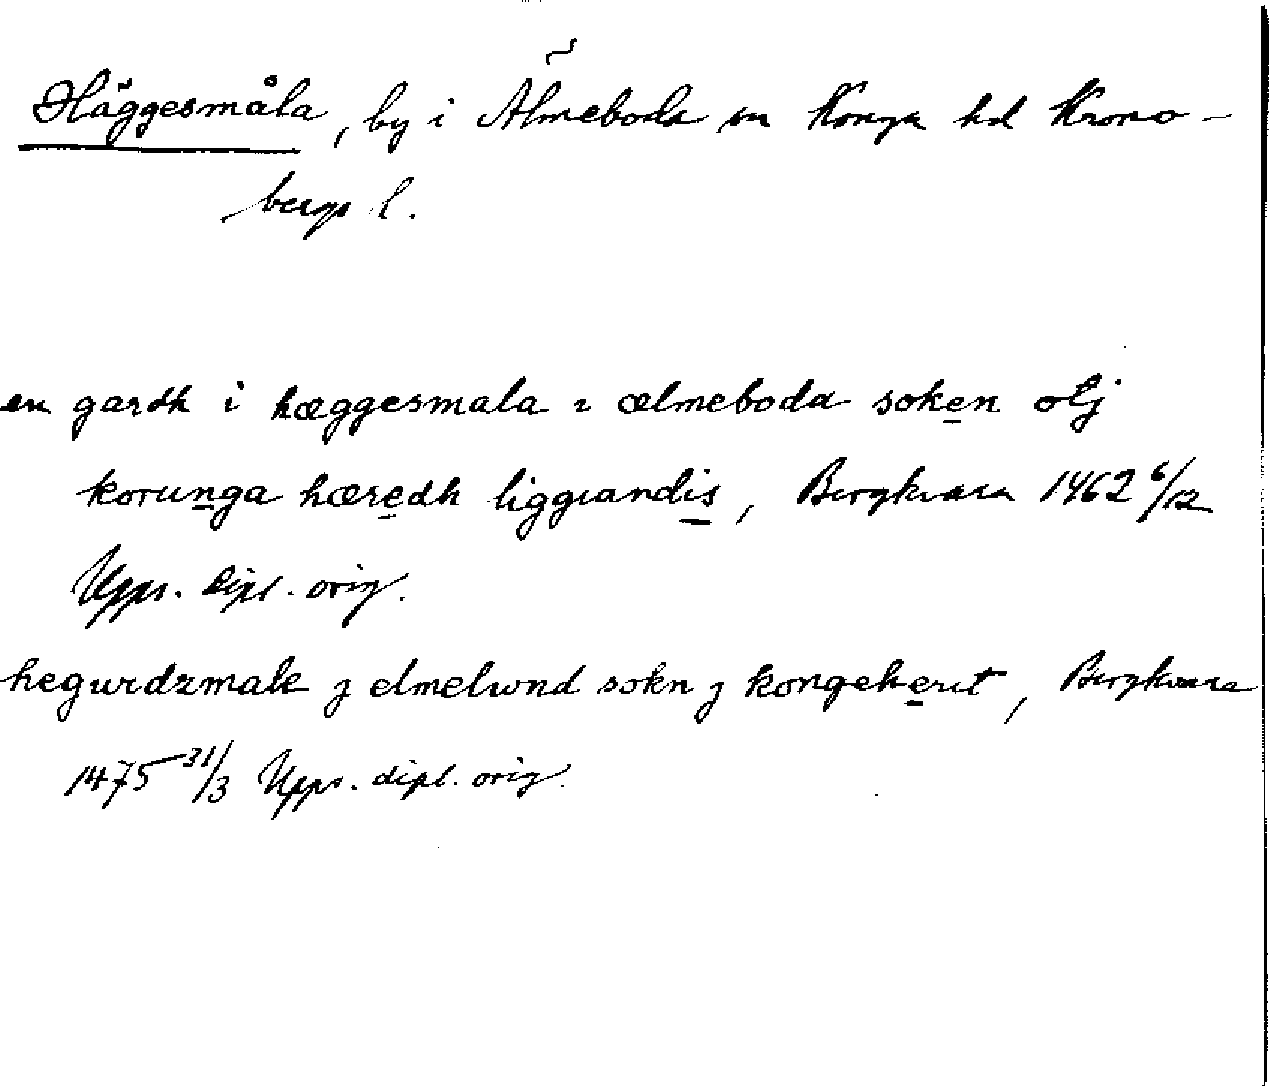 Häggesmåla, by i Älmeboda sn Konga hd Krono-
bergs l.
en gardh i hæggesmala i ælmeboda soken okj
korunga hæredh liggiandis, Bergkvara 1462 6/12
Upps. dipl. orig.
hegurdzmale j elmelwnd sokn j kongeherit, Bergkvara
1475 31/3 Upps. dipl. orig.